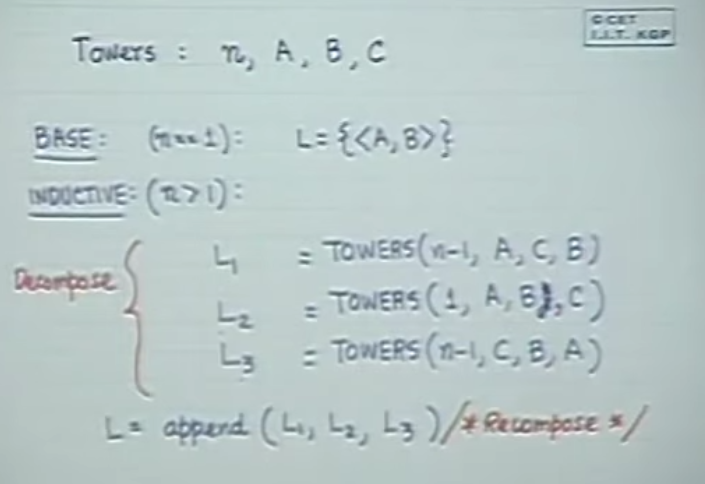 © CET
I.I.T. KGP
Towers : n, A, B, C
BASE: (n==1): L={<A,B>}
INDUCTIVE: (n>1):
Decompose
L1 = TOWERS(n-1, A, C, B)
L2 = TOWERS(1, A, B, C)
L3 = TOWERS(n-1, C, B, A)
L= append (L1, L2, L3) /* Recompose */